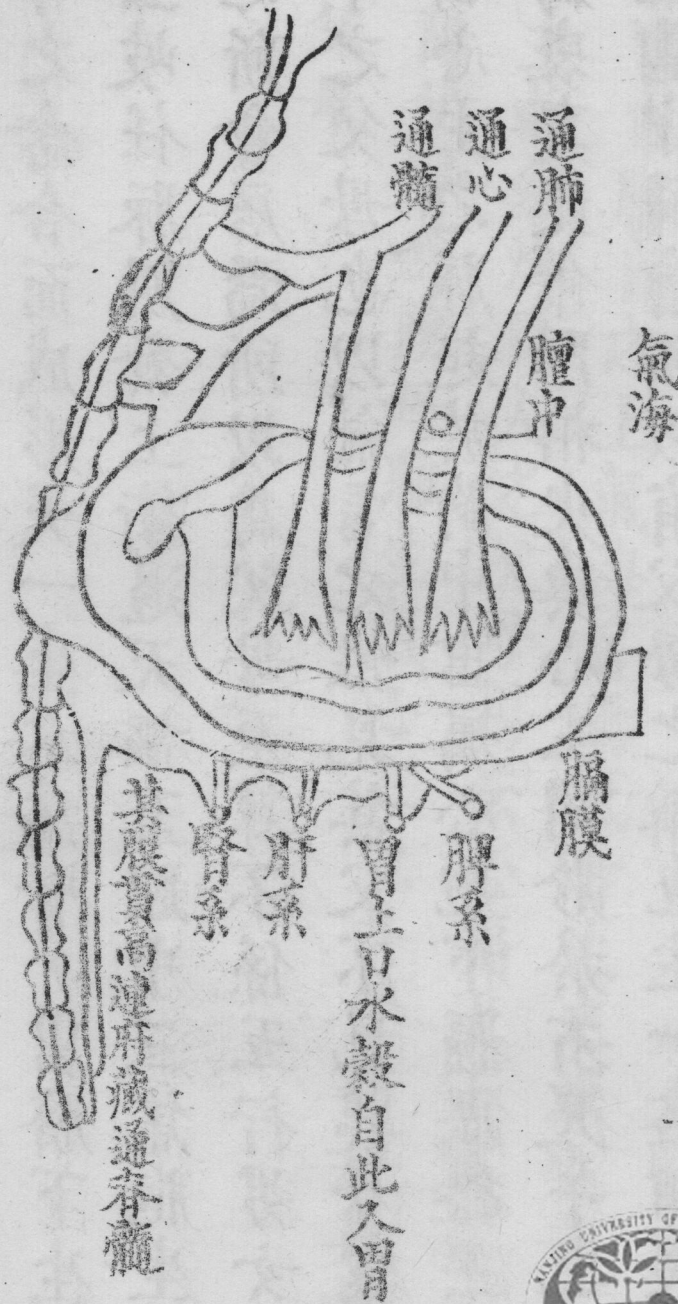 氣海
通肺
通心
通髓
膻中
膈膜
脾系
胃上口水穀自此入胃
肝系
腎系
其膜貫高連府藏通脊髓
NANJING UNIVERSITY OF